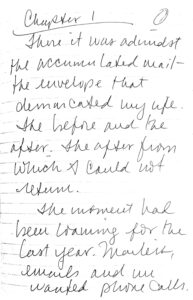 Chapter 1
There it was admidst
the accumulated mail-
the envelope that
demarcated my life.
The before and the
after. The after from
which I could not
return.
The moment had
been looming for the
last year. Mailers,
emails and un
wanted phone calls.